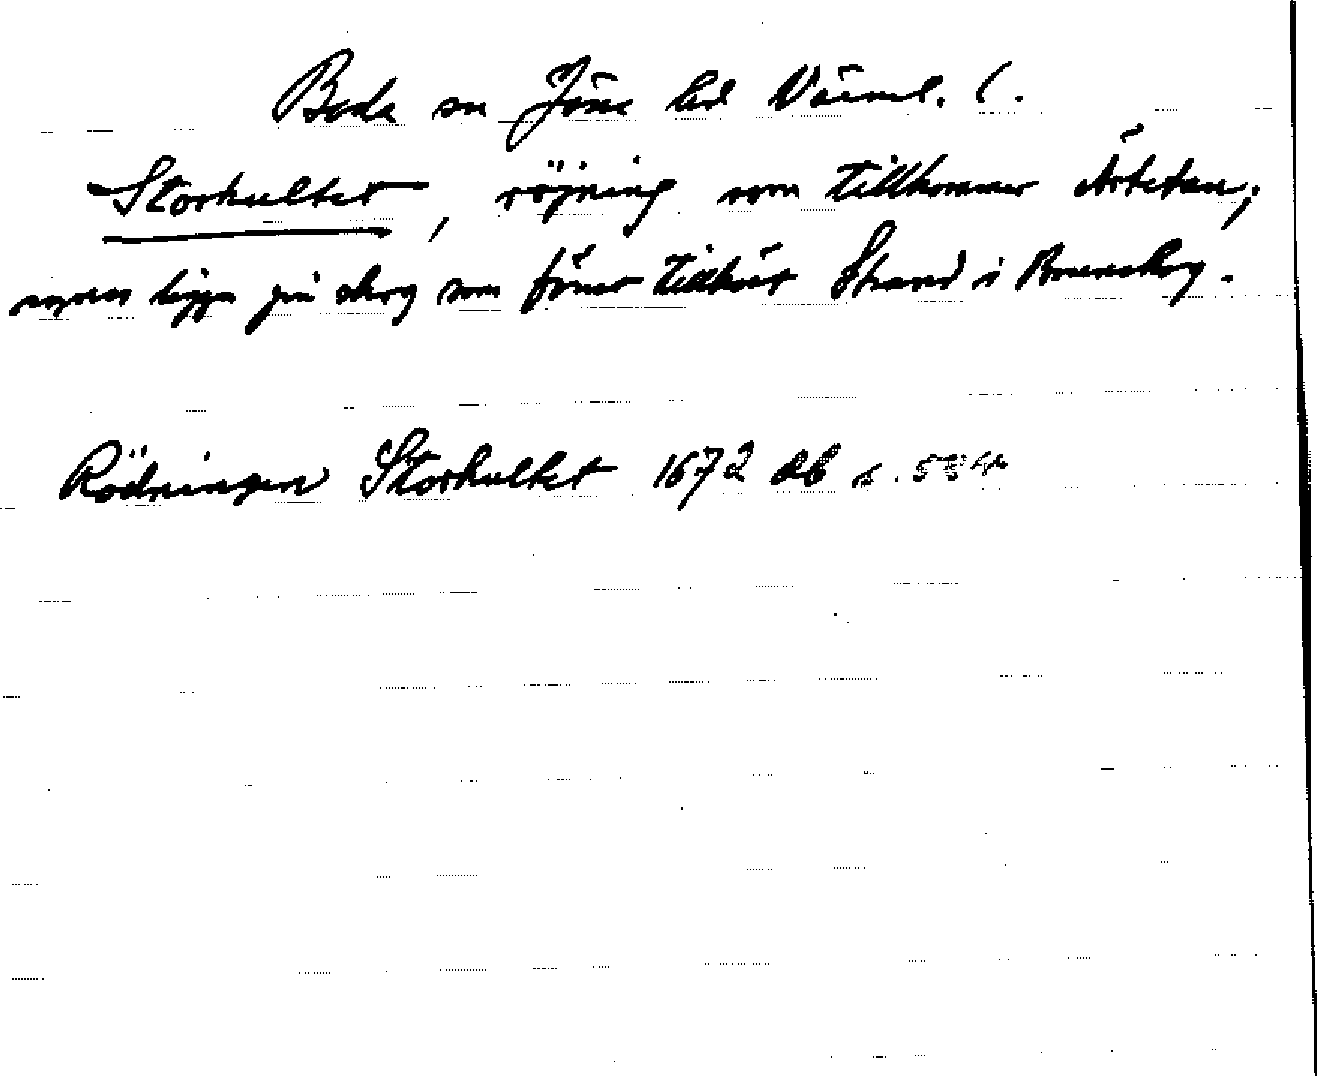 Boda sn Jösse hd Värml. l.
Storhultet, röjning som tillkommer Årtetan;
synes ligga på skog som förut tillhört Strand i Brunskog.
Rödningen Storhultet 1672 db s. 534